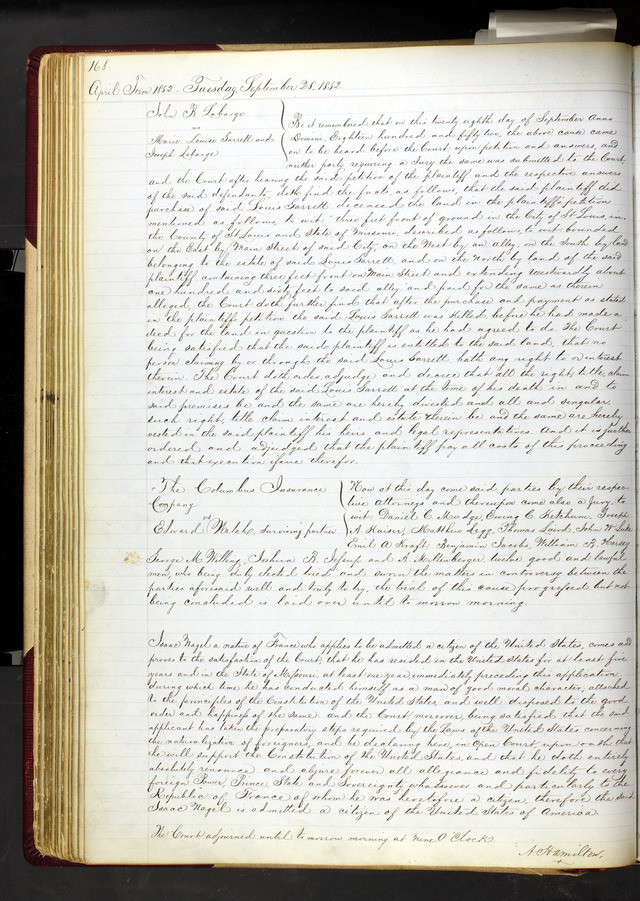 168
April Term 1852. Tuesday September 28, 1852
John B Labarge
vs
Marie Louise Sarrett and
Joseph Labarge
Be it remembered that on this twenty eighth day of September Anno
Domini, Eighteen hundred and fifty two, the above cause came
on to be heard before the Court, upon petition and answers, and
neither party requiring a Jury the same was submitted to the Court
and the Court after hearing the said petition of the plaintiff and the respective answers
of the said defendants, doth find the facts as follows, that the said plaintiff did
purchase of said Louis Sarrett deceased the land in the plaintiffs petition
mentioned as follows, to wit: three feet front of ground in the City of St Louis, in
the County of St Louis and State of Missouri, described as follows, to wit bounded
on the East by Main Street of said City, on the West by an alley, on the South by land
belonging to the estate of said Louis Sarrett, and on the North by land of the said
plaintiff containing three feet front on Main Street and extending Westwardly about
one hundred and sixty feet to said alley and paid for the same as therein
alleged, the Court doth further find that after the purchase and payment as stated
in the plaintiffs petition the said Louis Sarrett was killed before he had made a
deed for the land in question to the plaintiff as he had agreed to do. The Court
being satisfied that the said plaintiff is entitled to the said land, that no
person claiming by or through the said Louis Sarrett hath any right to or interest
therein. The Court doth order, adjudge and decree that all the right, title, claim
interest and estate of the said Louis Sarrett at the time of his death in and to
said premises be and the same are hereby divested and all and singular
such right, title claim interest and estate therein be and the same are hereby
vested in the said plaintiff his heirs and legal representatives. And it is further
ordered and adjudged that the plaintiff pay all costs of this proceeding
and that execution issue therefor.
The Columbus Insurance
Company
vs
Edward Walsh, surviving partner
Now at this day come said parties by their respec-
tive attorneys and thereupon come also a Jury, to
wit Daniel C Mudge, Ewing C Ketchum Joseph
A Kaiser, Matthew Legg, Thomas Laird, John W Luke
Emil A Kraft Benjamin Jacobs, William B Hersey
George M Willing, Joshua R Jessup and A Miltenberger, twelve good and lawful
men, who being duly elected tried and sworn the matters in controversy between the
parties aforesaid well and truly to try, the trial of this cause progressed but not
being concluded is laid over until to morrow morning.
Isaac Nagel a native of France who applies to be admitted a citizen of the United States, comes and
proves to the satisfaction of the Court, that he has resided in the United States for at least five
years and in the State of Missouri, at least one year immediately preceding this application
during which time he has conducted himself as a man of good moral character, attached
to the principles of the Constitution of the United States, and well disposed to the good
order and happiness of the same and the Court moreover, being satisfied that the said
applicant has taken the preparatory steps required by the Laws of the United States concerning
the naturalization of foreigners, and he declaring here in open Court upon oath that
he will support the Constitution of the United States, and that he doth entirely
absolutely renounce and abjure forever all allegiance and fidelity to every
foreign Power, Prince State and Sovereignty whatsoever and particularly to the
Republic of France of whom he was heretofore a citizen, therefore the said
Isaac Nagel is admitted a citizen of the United States of America
The Court adjourned until to morrow morning at Nine O'Clock
A Hamilton,